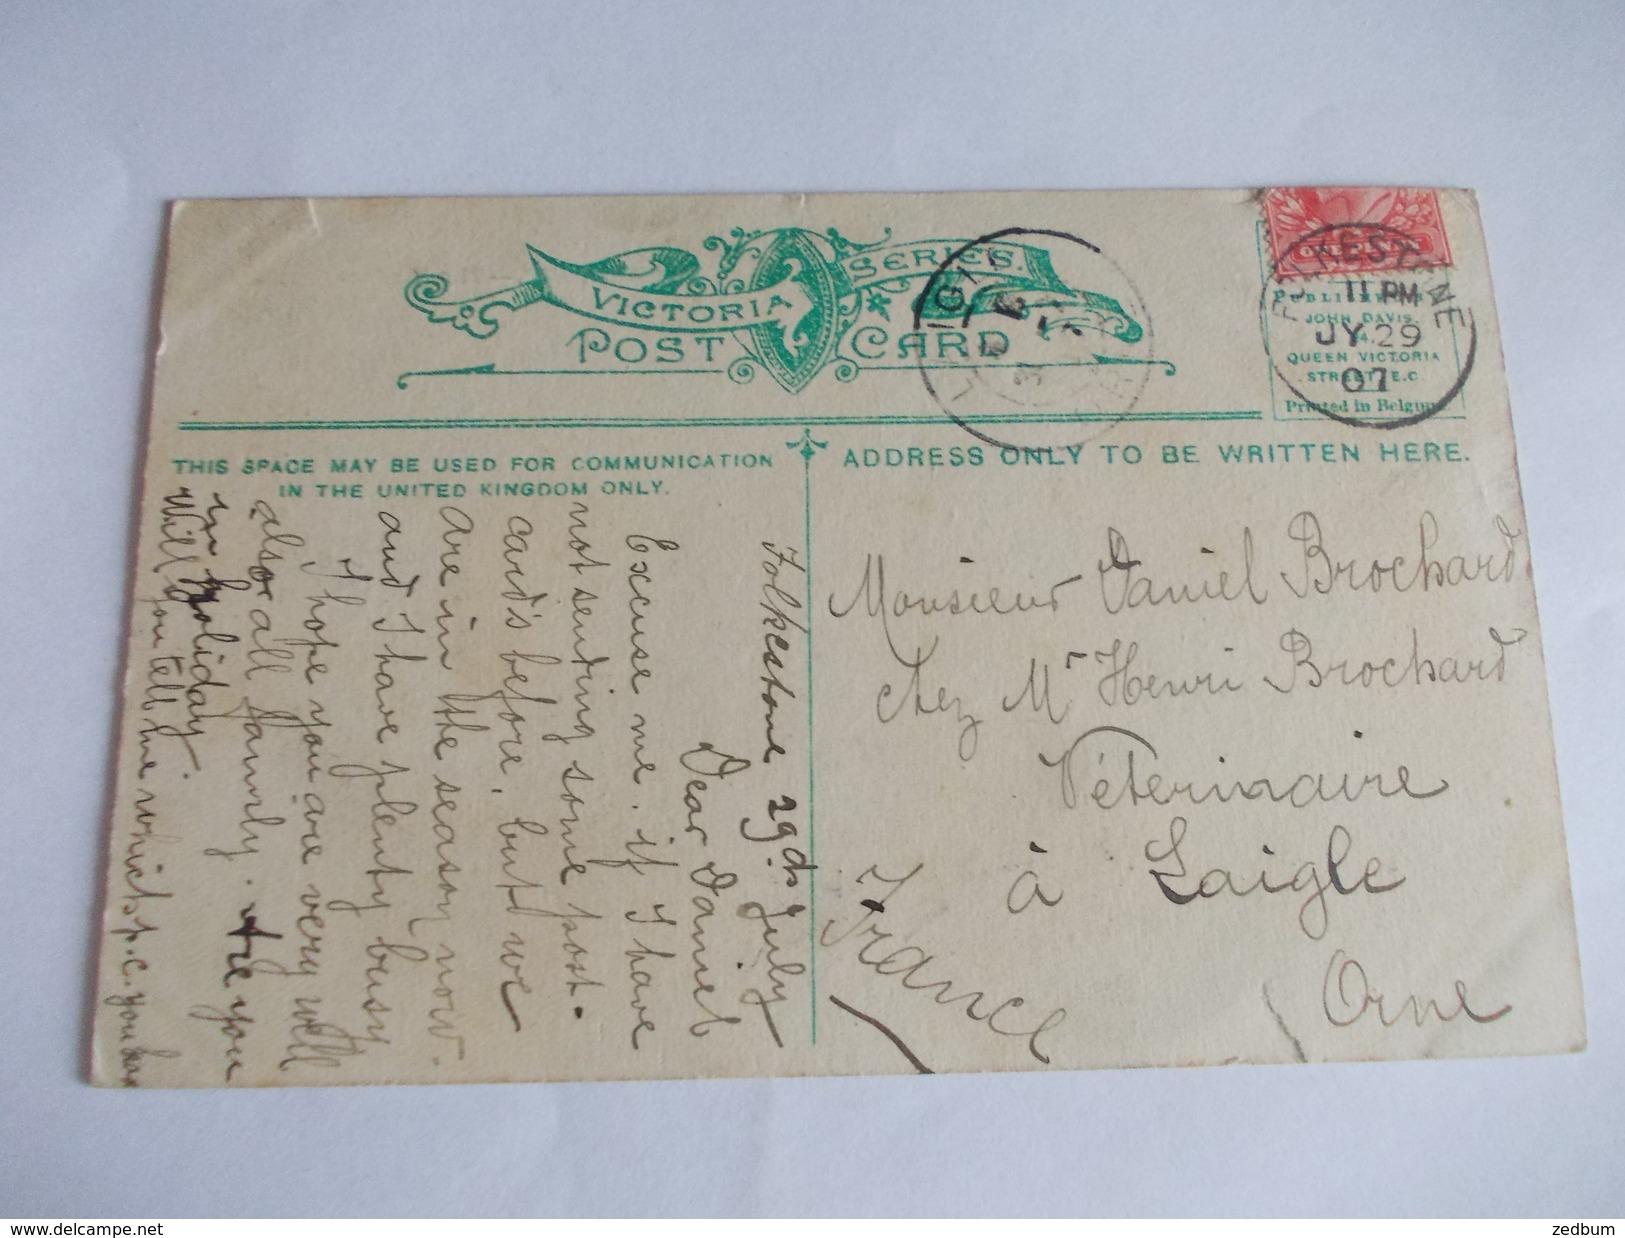 VICTORIA SERIES.
POST CARD
FOLKESTONE
11 PM
JY 29
07
JOHN DAVIS
QUEEN VICTORIA
STREET, E.C
Printed in Belgium
THIS SPACE MAY BE USED FOR COMMUNICATION
IN THE UNITED KINGDOM ONLY.
ADDRESS ONLY TO BE WRITTEN HERE.
Folkestone 29.ds July
Dear Daniel
Excuse me, if I have
not sending some post-
card's before, but we
are in the season now.
and I have plenty busy
I hope you are very well
also all family. Are you
in holiday.
Will you tell me which p.c. you
Monsieur Daniel Brochard
chez Mr Henri Brochard
Véterinaire
à Laigle
Orne
France
zedbum
www.delcampe.net